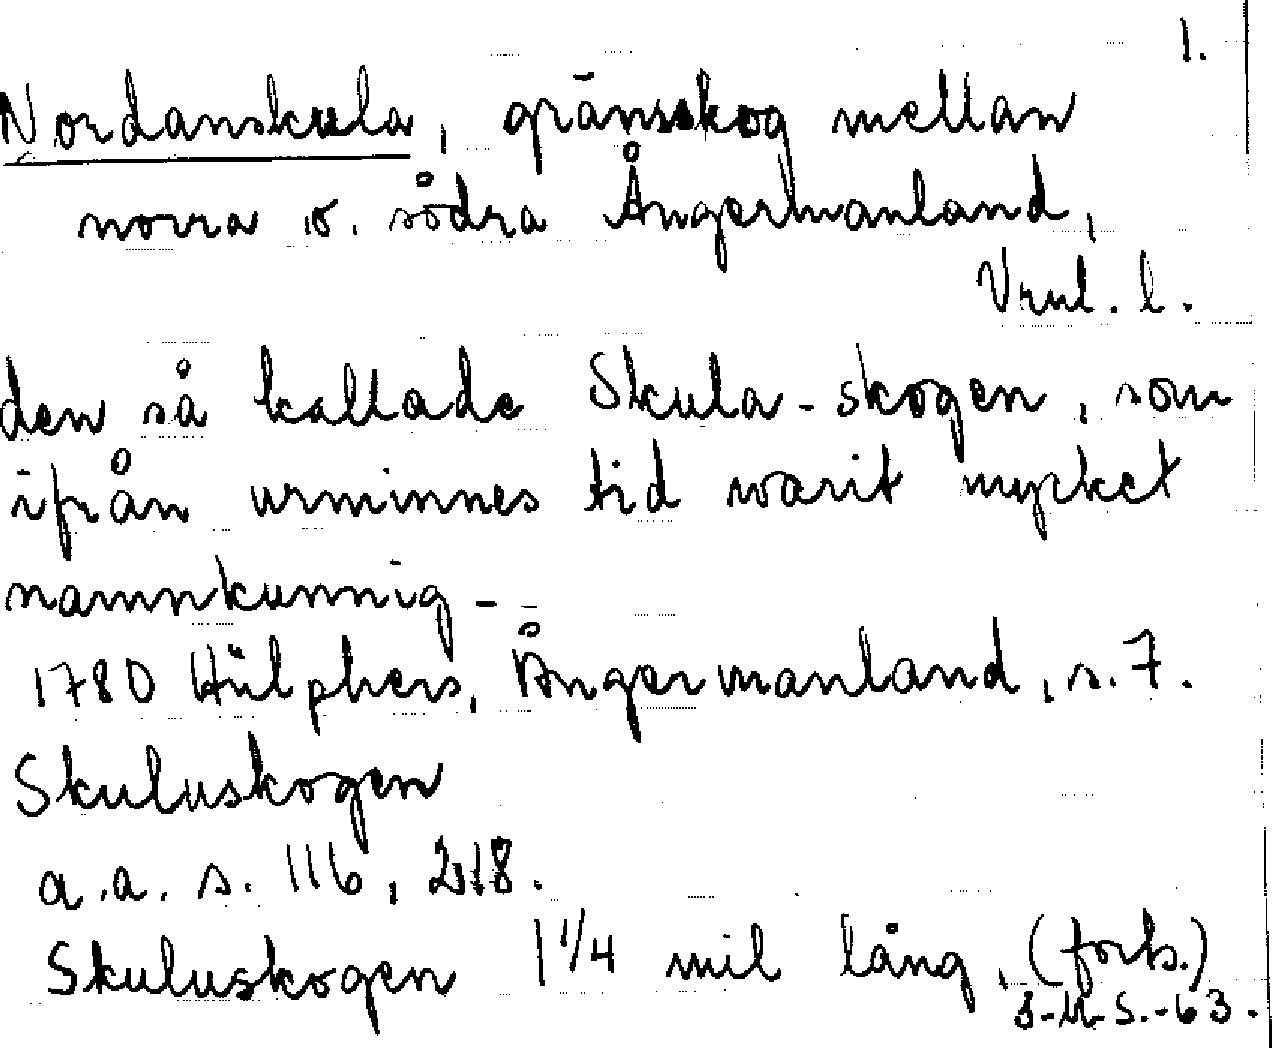 1.
Nordanskula, gränsskog mellan
norra o. södra Ångermanland,
Vrul. l.
den så kallade Skula-skogen, som
ifrån urminnes tid warit mycket
namnkunnig -
1780 Hülphers, Ångermanland, s. 7.
Skuluskogen
a.a. s. 116, 218.
Skuluskogen 1 1/4 mil lång, (forts.)
S-M-S.-63.